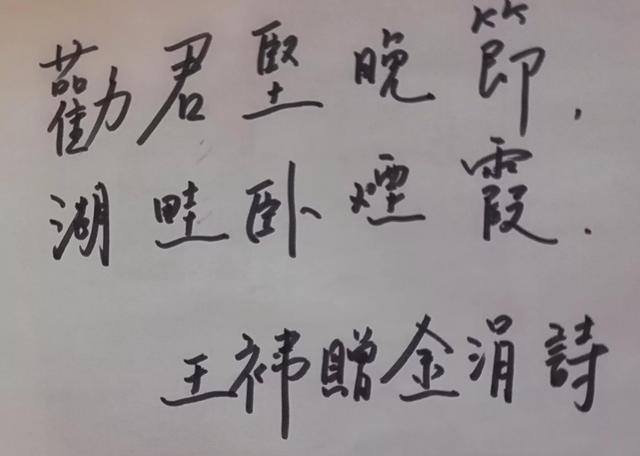 勸君堅晚節.
湖畦卧煙霞.
王禕贈金涓詩